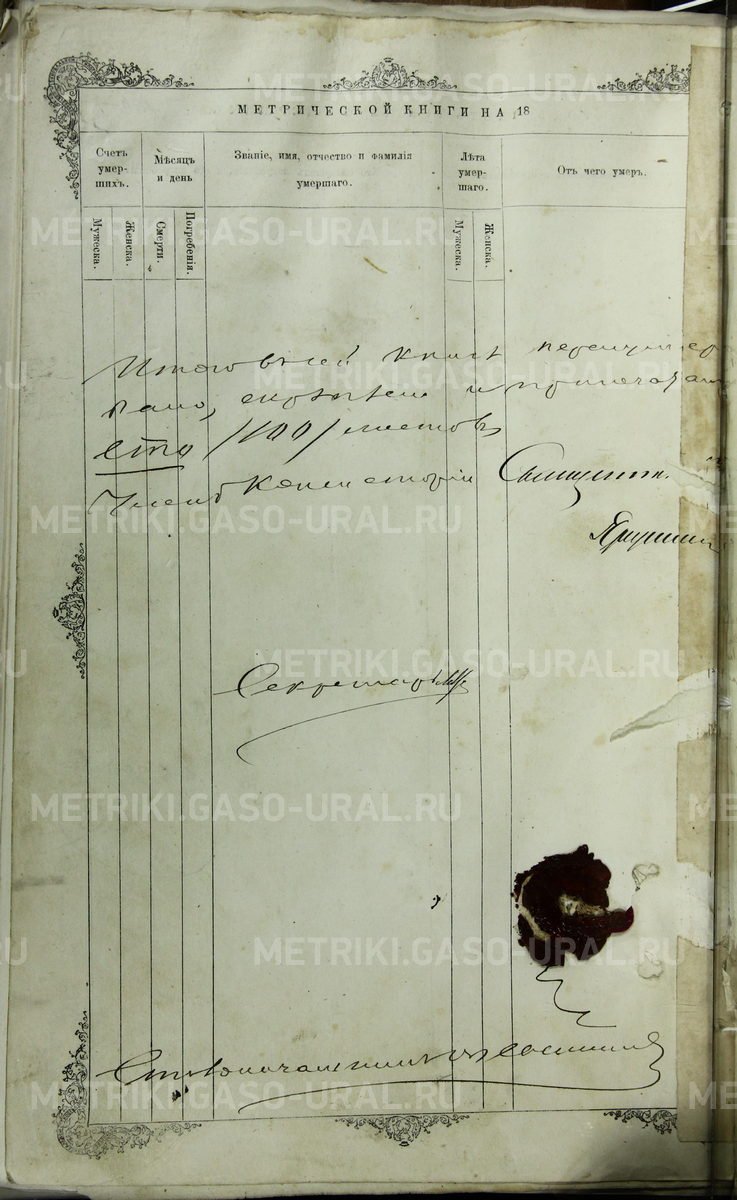 МЕТРИЧЕСКОЙ КНИГИ НА 18
Счетъ умер-
шихъ.
Мѣсяцъ
и день
Званіе, имя, отчество и фамилія
умершаго.
Лѣта
умер-
шаго.
Отъ чего умеръ.
Мужеска.
Женска.
Смерти.
Погребенія.
Мужеска.
Женска.
Итого въ сей книгѣ перенумеро
вано, скрѣплено и припечатано
сто /100/ листовъ
Членъ Консисторіи Священн.
Секретарь
Столоначальникъ
METRIKI.GASO-URAL.RU